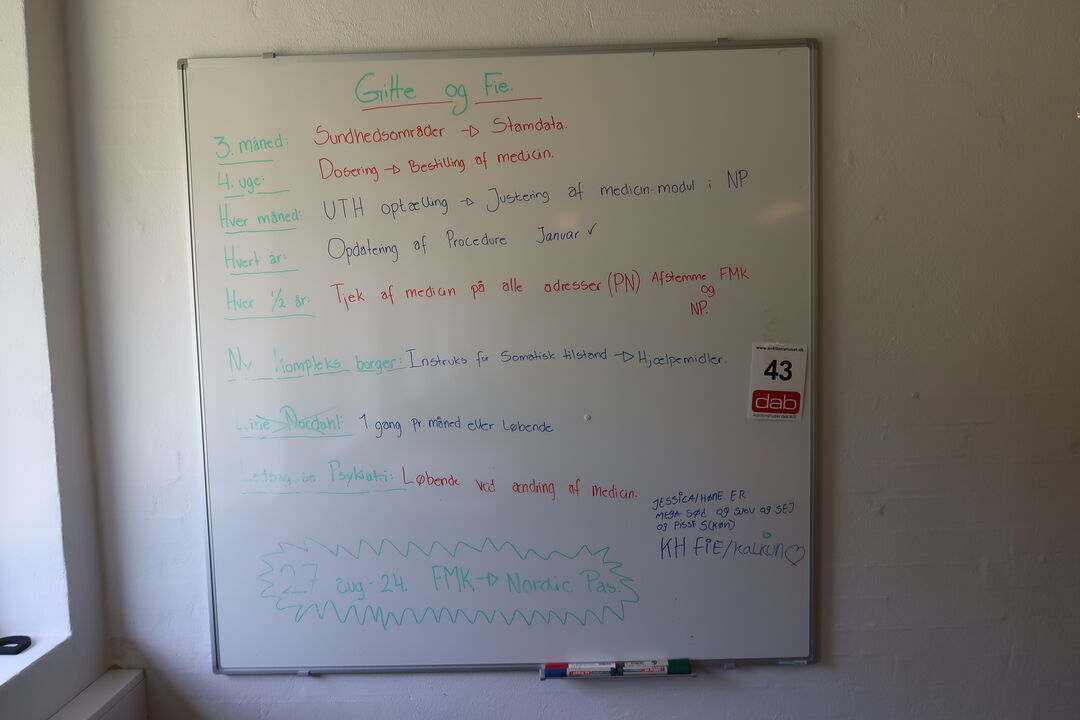 Gitte og Fie.
3. måned: Sundhedsområder → Stamdata.
4. uge: Dosering → Bestilling af medicin.
Hver måned: UTH optælling → Justering af medicin-modul i NP
Hvert år: Opdatering af Procedure Januar ✓
Hver 1/2 år: Tjek af medicin på alle adresser (PN) Afstemme FMK
og
NP.
Ny kompleks borger: Instruks for Somatisk tilstand → Hjælpemidler.
Line Nordahl: 1. gang pr. måned eller Løbende
Psykiatri: Løbende ved ændring af medicin.
JESSICA/HØNE ER
MEGA SØd og SJOV og SEJ
og PISSE S(KØN)
KH FIE/KALKUN ♡
27 aug - 24. FMK → Nordic Pas.
www.auktionshuset.dk
43
dab
Auktionshuset dab A/S